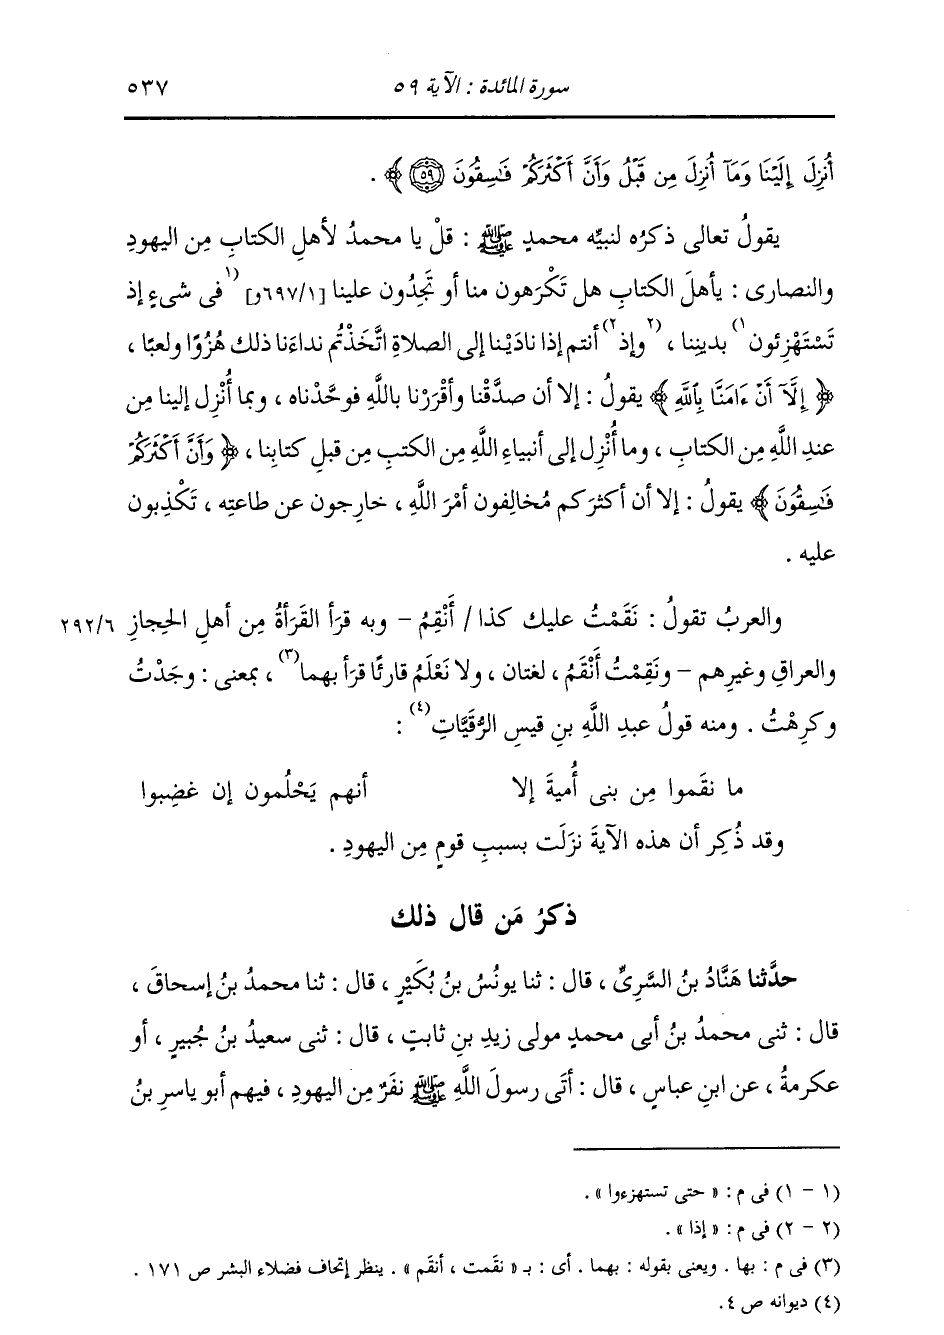 سورة المائدة : الآية ٥٩
٥٣٧
أُنزِلَ إِلَيْنَا وَمَآ أُنزِلَ مِن قَبْلُ وَأَنَّ أَكْثَرَكُمْ فَٰسِقُونَ ٥٩ ﴾ .
يقولُ تعالى ذكرُه لنبيِّه محمدٍ ﷺ : قلْ يا محمدُ لأهلِ الكتابِ مِن اليهودِ
والنصارى : يأهلَ الكتابِ هل تَكْرَهون منا أو تَجِدُون علينا [٦٩٧/١و] (١فى شىءٍ إذ
تَسْتَهْزِئون١) بدينِنا ، (٢وإذ٢) أنتم إذا نادَيْنا إلى الصلاةِ اتَّخَذْتُم نداءَنا ذلك هُزُوًا ولعبًا ،
﴿ إِلَّآ أَنْ ءَامَنَّا بِٱللَّهِ ﴾ يقولُ : إلا أن صدَّقْنا وأقْرَرْنا باللَّهِ فوحَّدْناه ، وبما أُنْزِل إلينا مِن
عندِ اللَّهِ مِن الكتابِ ، وما أُنْزِل إلى أنبياءِ اللَّهِ مِن الكتبِ مِن قبلِ كتابِنا ، ﴿ وَأَنَّ أَكْثَرَكُمْ
فَٰسِقُونَ ﴾ يقولُ : إلا أن أكثرَكم مُخالِفون أمْرَ اللَّهِ ، خارِجون عن طاعتِه ، تَكْذِبون
عليه .
والعربُ تقولُ : نَقَمْتُ عليك كذا / أَنْقِمُ – وبه قرَأ القَرَأةُ مِن أهلِ الحِجازِ ٢٩٢/٦
والعراقِ وغيرِهم – ونَقِمْتُ أَنْقَمُ ، لغتان ، ولا نَعْلَمُ قارئًا قرَأ بهما(٣) ، بمعنى : وجَدْتُ
وكرِهْتُ . ومنه قولُ عبدِ اللَّهِ بنِ قيسِ الرُّقَيَّاتِ(٤) :
ما نقَموا مِن بنى أُميةَ إلا أنهم يَحْلُمون إن غضِبوا
وقد ذُكِر أن هذه الآيةَ نزَلَت بسببِ قومٍ مِن اليهودِ .
ذكرُ مَن قال ذلك
حدَّثنا هَنَّادُ بنُ السَّرِىِّ ، قال : ثنا يونُسُ بنُ بُكَيْرٍ ، قال : ثنا محمدُ بنُ إسحاقَ ،
قال : ثنى محمدُ بنُ أبى محمدٍ مولى زيدِ بنِ ثابتٍ ، قال : ثنى سعيدُ بنُ جُبيرٍ ، أو
عكرمةُ ، عن ابنِ عباسٍ ، قال : أتَى رسولَ اللَّهِ ﷺ نفَرٌ مِن اليهودِ ، فيهم أبو ياسرِ بنُ
(١ – ١) فى م : « حتى تستهزءوا » .
(٢ – ٢) فى م : « إذا » .
(٣) فى م : بها . ويعنى بقوله : بهما . أى : بـ « نقمت ، أنقم » . ينظر إتحاف فضلاء البشر ص ١٧١ .
(٤) ديوانه ص ٤.